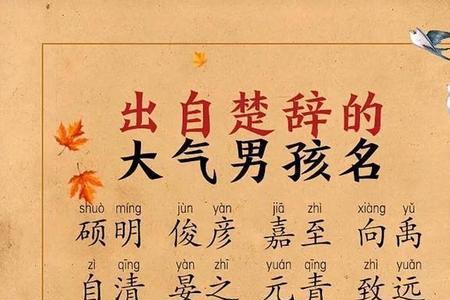 出自楚辞的
大气男孩名
shuò míng jùn yàn jiā zhì xiàng yǔ
硕明 俊彦 嘉至 向禹
zì qīng yàn zhī yuán qīng zhì yuǎn
自清 晏之 元青 致远